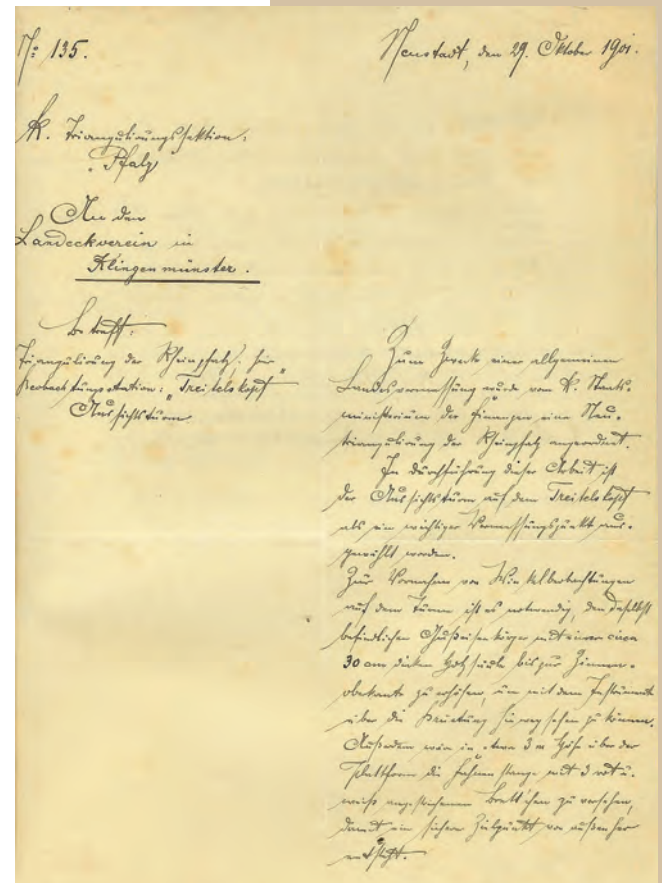 No 135.
Neustadt, den 29. Oktober 1901.
K. Triangulirungssektion:
"Pfalz"
An den
Landeckverein in
Klingenmünster.
Betreff:
Triangulirung der Rheinpfalz; hier
Beobachtungsstation: "Treitelskopf"
Aussichtsturm.
Zum Zwecke einer allgemeinen
Landesvermessung wurde vom K. Staats-
ministerium der Finanzen eine Neu-
triangulirung der Rheinpfalz angeordnet.
In Durchführung dieser Arbeit ist
der Aussichtsturm auf dem Treitelskopf
als ein wichtiger Vermessungspunkt aus-
gewählt worden.
Zur Vornahme von Winkelbeobachtungen
auf dem Turme ist es notwendig, den daselbst
befindlichen Gußeisenkörper mit einer circa
30 cm dicken Holzsäule bis zur Zinnen-
oberkante zu erhöhen, um mit dem Instrument
über die Brüstung hinweg sehen zu können.
Außerdem wäre in etwa 3 m Höhe über der
Plattform die Fahnenstange mit 3 rot u.
weiß angestrichenen Brettchen zu versehen,
damit ein sicherer Zielpunkt von außen her
entsteht.